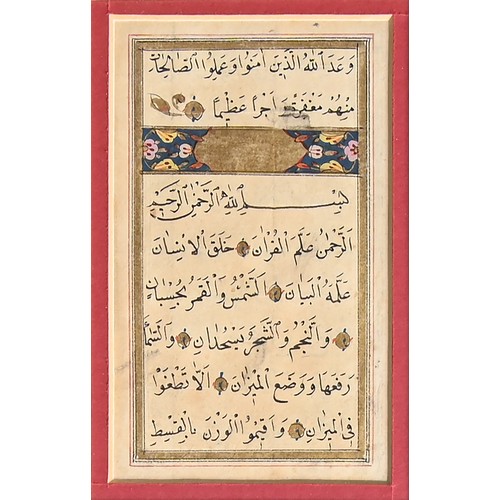 وَعَدَ اللّٰهُ الَّذِينَ اٰمَنُوا وَعَمِلُوا الصَّالِحَاتِ
مِنْهُمْ مَغْفِرَةً وَاَجْرًا عَظِيمًا
بِسْمِ اللّٰهِ الرَّحْمٰنِ الرَّحِيمِ
الرَّحْمٰنُ عَلَّمَ الْقُرْاٰنَ خَلَقَ الْاِنْسَانَ
عَلَّمَهُ الْبَيَانَ الشَّمْسُ وَالْقَمَرُ بِحُسْبَانٍ
وَالنَّجْمُ وَالشَّجَرُ يَسْجُدَانِ وَالسَّمَاءَ
رَفَعَهَا وَوَضَعَ الْمِيزَانَ اَلَّا تَطْغَوْا
فِي الْمِيزَانِ وَاَقِيمُوا الْوَزْنَ بِالْقِسْطِ